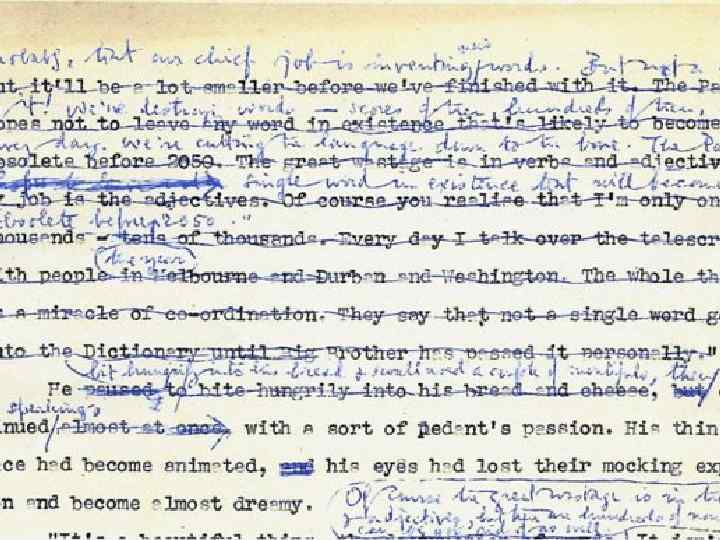 but our chief job is inventing words. But not a
ut, it'll be a lot smaller before we've finished with it. The Pa
it! We're destroying words — scores of them, hundreds of them,
opes not to leave any word in existence that's likely to become
every day. We're cutting the language down to the bone. The Pa
bsolete before 2050. The great wastage is in verbs and adjectiv
single word in existence that will become
y job is the adjectives. Of course you realise that I'm only on
obsolete before 2050."
housands - tens of thousands. Every day I talk over the telescr
the year
ith people in Melbourne and Durban and Washington. The whole th
s a miracle of co-ordination. They say that not a single word g
nto the Dictionary until Big Brother has passed it personally."
bit hungrily into his bread & swallowed a couple of mouthfuls, then
He paused to bite hungrily into his bread and cheese, but
speaking,
inued almost at once, with a sort of pedant's passion. His thin
ce had become animated, and his eyes had lost their mocking exp
n and become almost dreamy.
Of course the great wastage is in the
& adjectives, but there are hundreds of nouns
"It's a beautiful thing